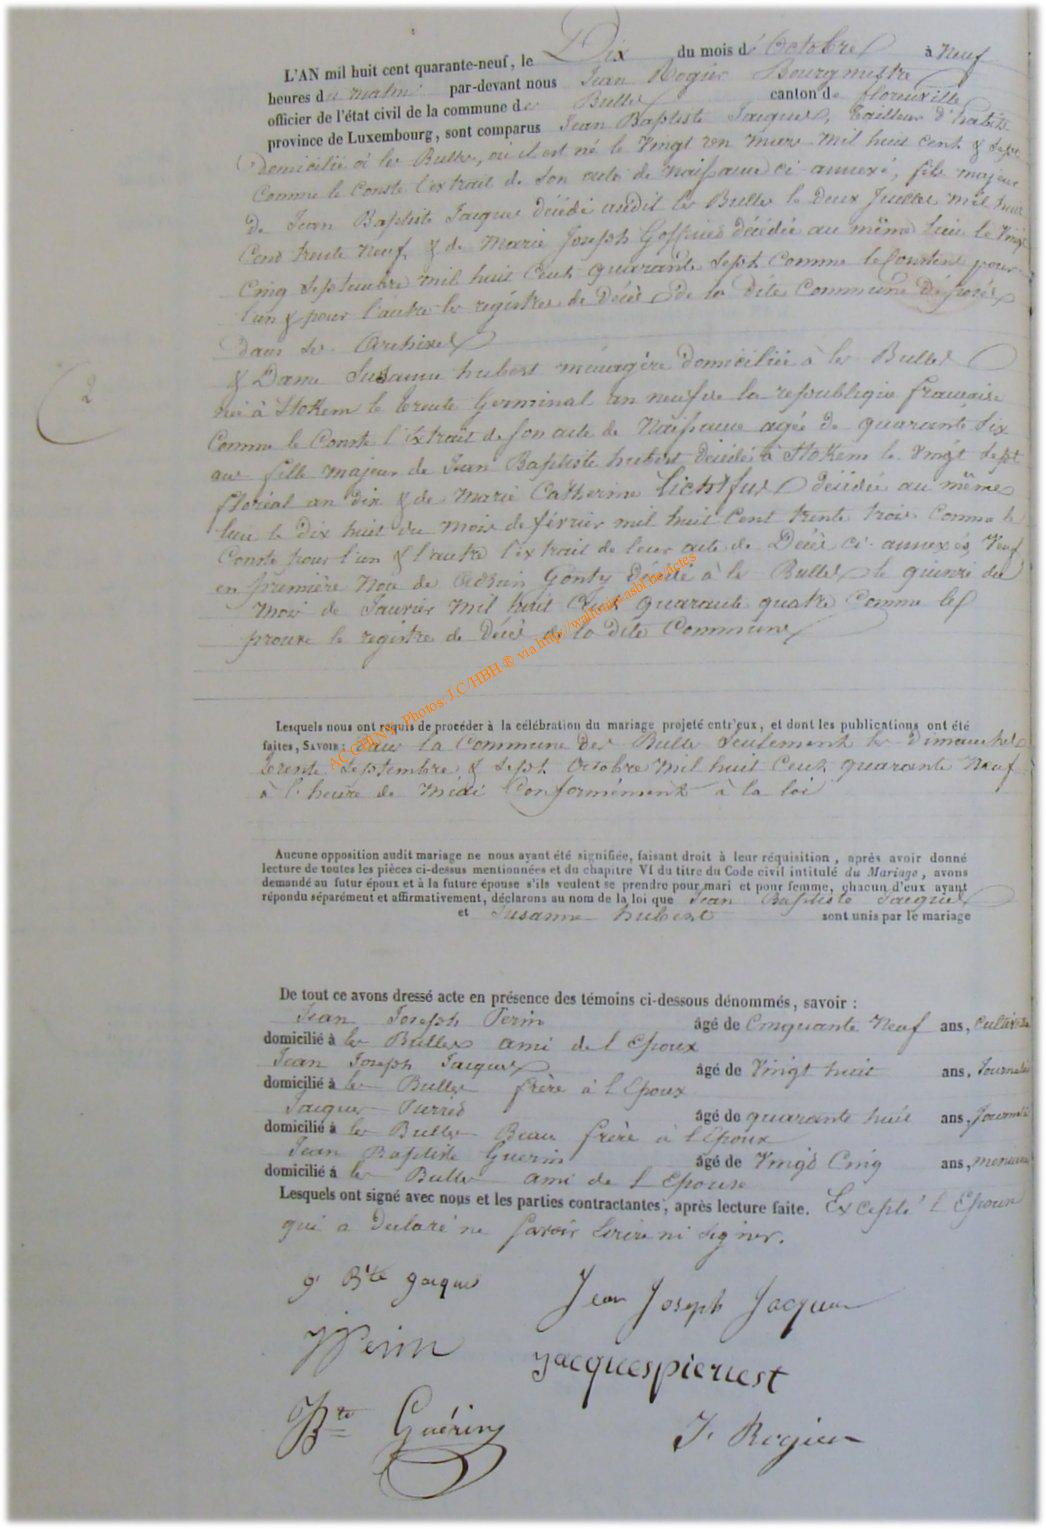 L'AN mil huit cent quarante-neuf, le Dix du mois d'Octobre à Neuf
heures du matin par-devant nous Jean Rogier Bourgmestre
officier de l'état civil de la commune de Bulles canton de florenville
province de Luxembourg, sont comparus Jean Baptiste Jacques, tailleur d'habits
domicilié à les Bulles, où il est né le Vingt un mars mil huit cent & sept
Comme le Conste l'extrait de son acte de Naissance ci annexé, fils majeur
de Jean Baptiste Jacques décédé audit les Bulles le deux Juillet mil huit
Cent trente Neuf & de Marie Joseph Goffinet décédée au même lieu le Vingt
Cinq Septembre mil huit Cent quarante Sept Comme le Constent pour
l'un & pour l'autre les registres de Décès de la dite Commune Déposés
dans les Archives
& Dame Susanne hubert ménagère domiciliée à les Bulles
2
née à Stokem le trente Germinal an neuf de la république française
Comme le Conste l'Extrait de son acte de Naissance agée de quarante six
ans fille majeur de Jean Baptiste hubert décédé à Stokem le Vingt sept
floréal an dix & de Marie Catherine lichtfus décédée au même
lieu le dix huit du mois de février mil huit Cent trente trois Comme le
Conste pour l'un & l'autre l'extrait de leur acte de Décès ci annexés, Veuf
en première Noce de Adrien Gonty décédé à les Bulles le quinze du
mois de Janvier mil huit Cent quarante quatre Comme le
prouve le registre de Décès de la dite Commune
ACCHINY Photos: J.C/HBH ® via http://walthinie.asbl.be/Actes
Lesquels nous ont requis de procéder à la célébration du mariage projeté entr'eux, et dont les publications ont été
faites, SAVOIR: dans la Commune des Bulles Seulement les Dimanches
trente Septembre & Sept Octobre mil huit Cent quarante Neuf
à l'heure de Midi Conformément à la loi
Aucune opposition audit mariage ne nous ayant été signifiée, faisant droit à leur réquisition, après avoir donné
lecture de toutes les pièces ci-dessus mentionnées et du chapitre VI du titre du Code civil intitulé du Mariage, avons
demandé au futur époux et à la future épouse s'ils veulent se prendre pour mari et pour femme, chacun d'eux ayant
répondu séparément et affirmativement, déclarons au nom de la loi que Jean Baptiste Jacques
et Susanne hubert sont unis par le mariage
De tout ce avons dressé acte en présence des témoins ci-dessous dénommés, savoir :
Jean Joseph Perin âgé de Cinquante Neuf ans, Cultivateur
domicilié à les Bulles ami de l'Epoux
Jean Joseph Jacques âgé de Vingt huit ans, Journalier
domicilié à les Bulles frère à l'Epoux
Jacques Pierret âgé de quarante huit ans, Journalier
domicilié à les Bulles Beau frère à l'Epoux
Jean Baptiste Guerin âgé de Vingt Cinq ans,
domicilié à les Bulles ami de l'Epouse
Lesquels ont signé avec nous et les parties contractantes, après lecture faite. Excepté l'Epouse
qui a déclaré ne savoir Ecrire ni signer.
J Bte Jacques Jean Joseph Jacques
JJ Perin
jacquespierrest
JBte Guérin J. Rogier